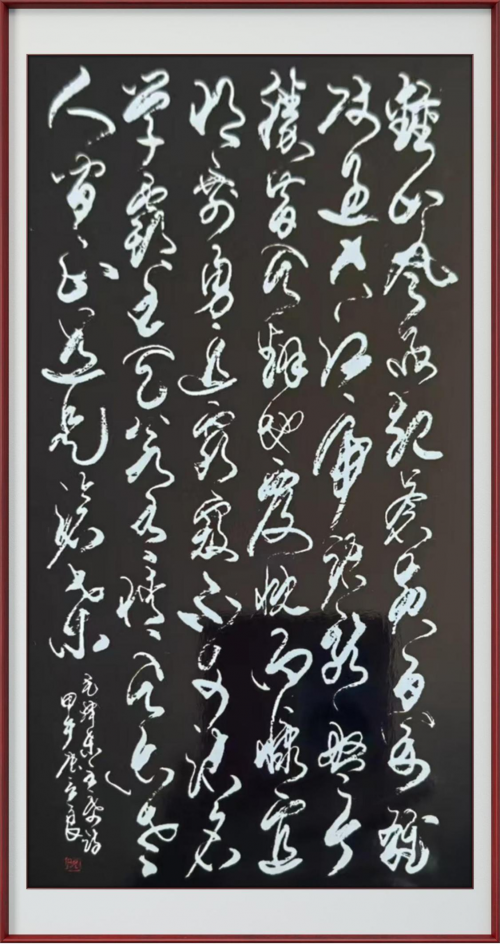 鍾山風雨起蒼黃百萬雄
師過大江虎踞龍盤今
勝昔天翻地覆慨而慷宜
將剩勇追窮寇不可沽名
學霸王天若有情天亦老
人間正道是滄桑
毛澤東主席詩
甲午立良